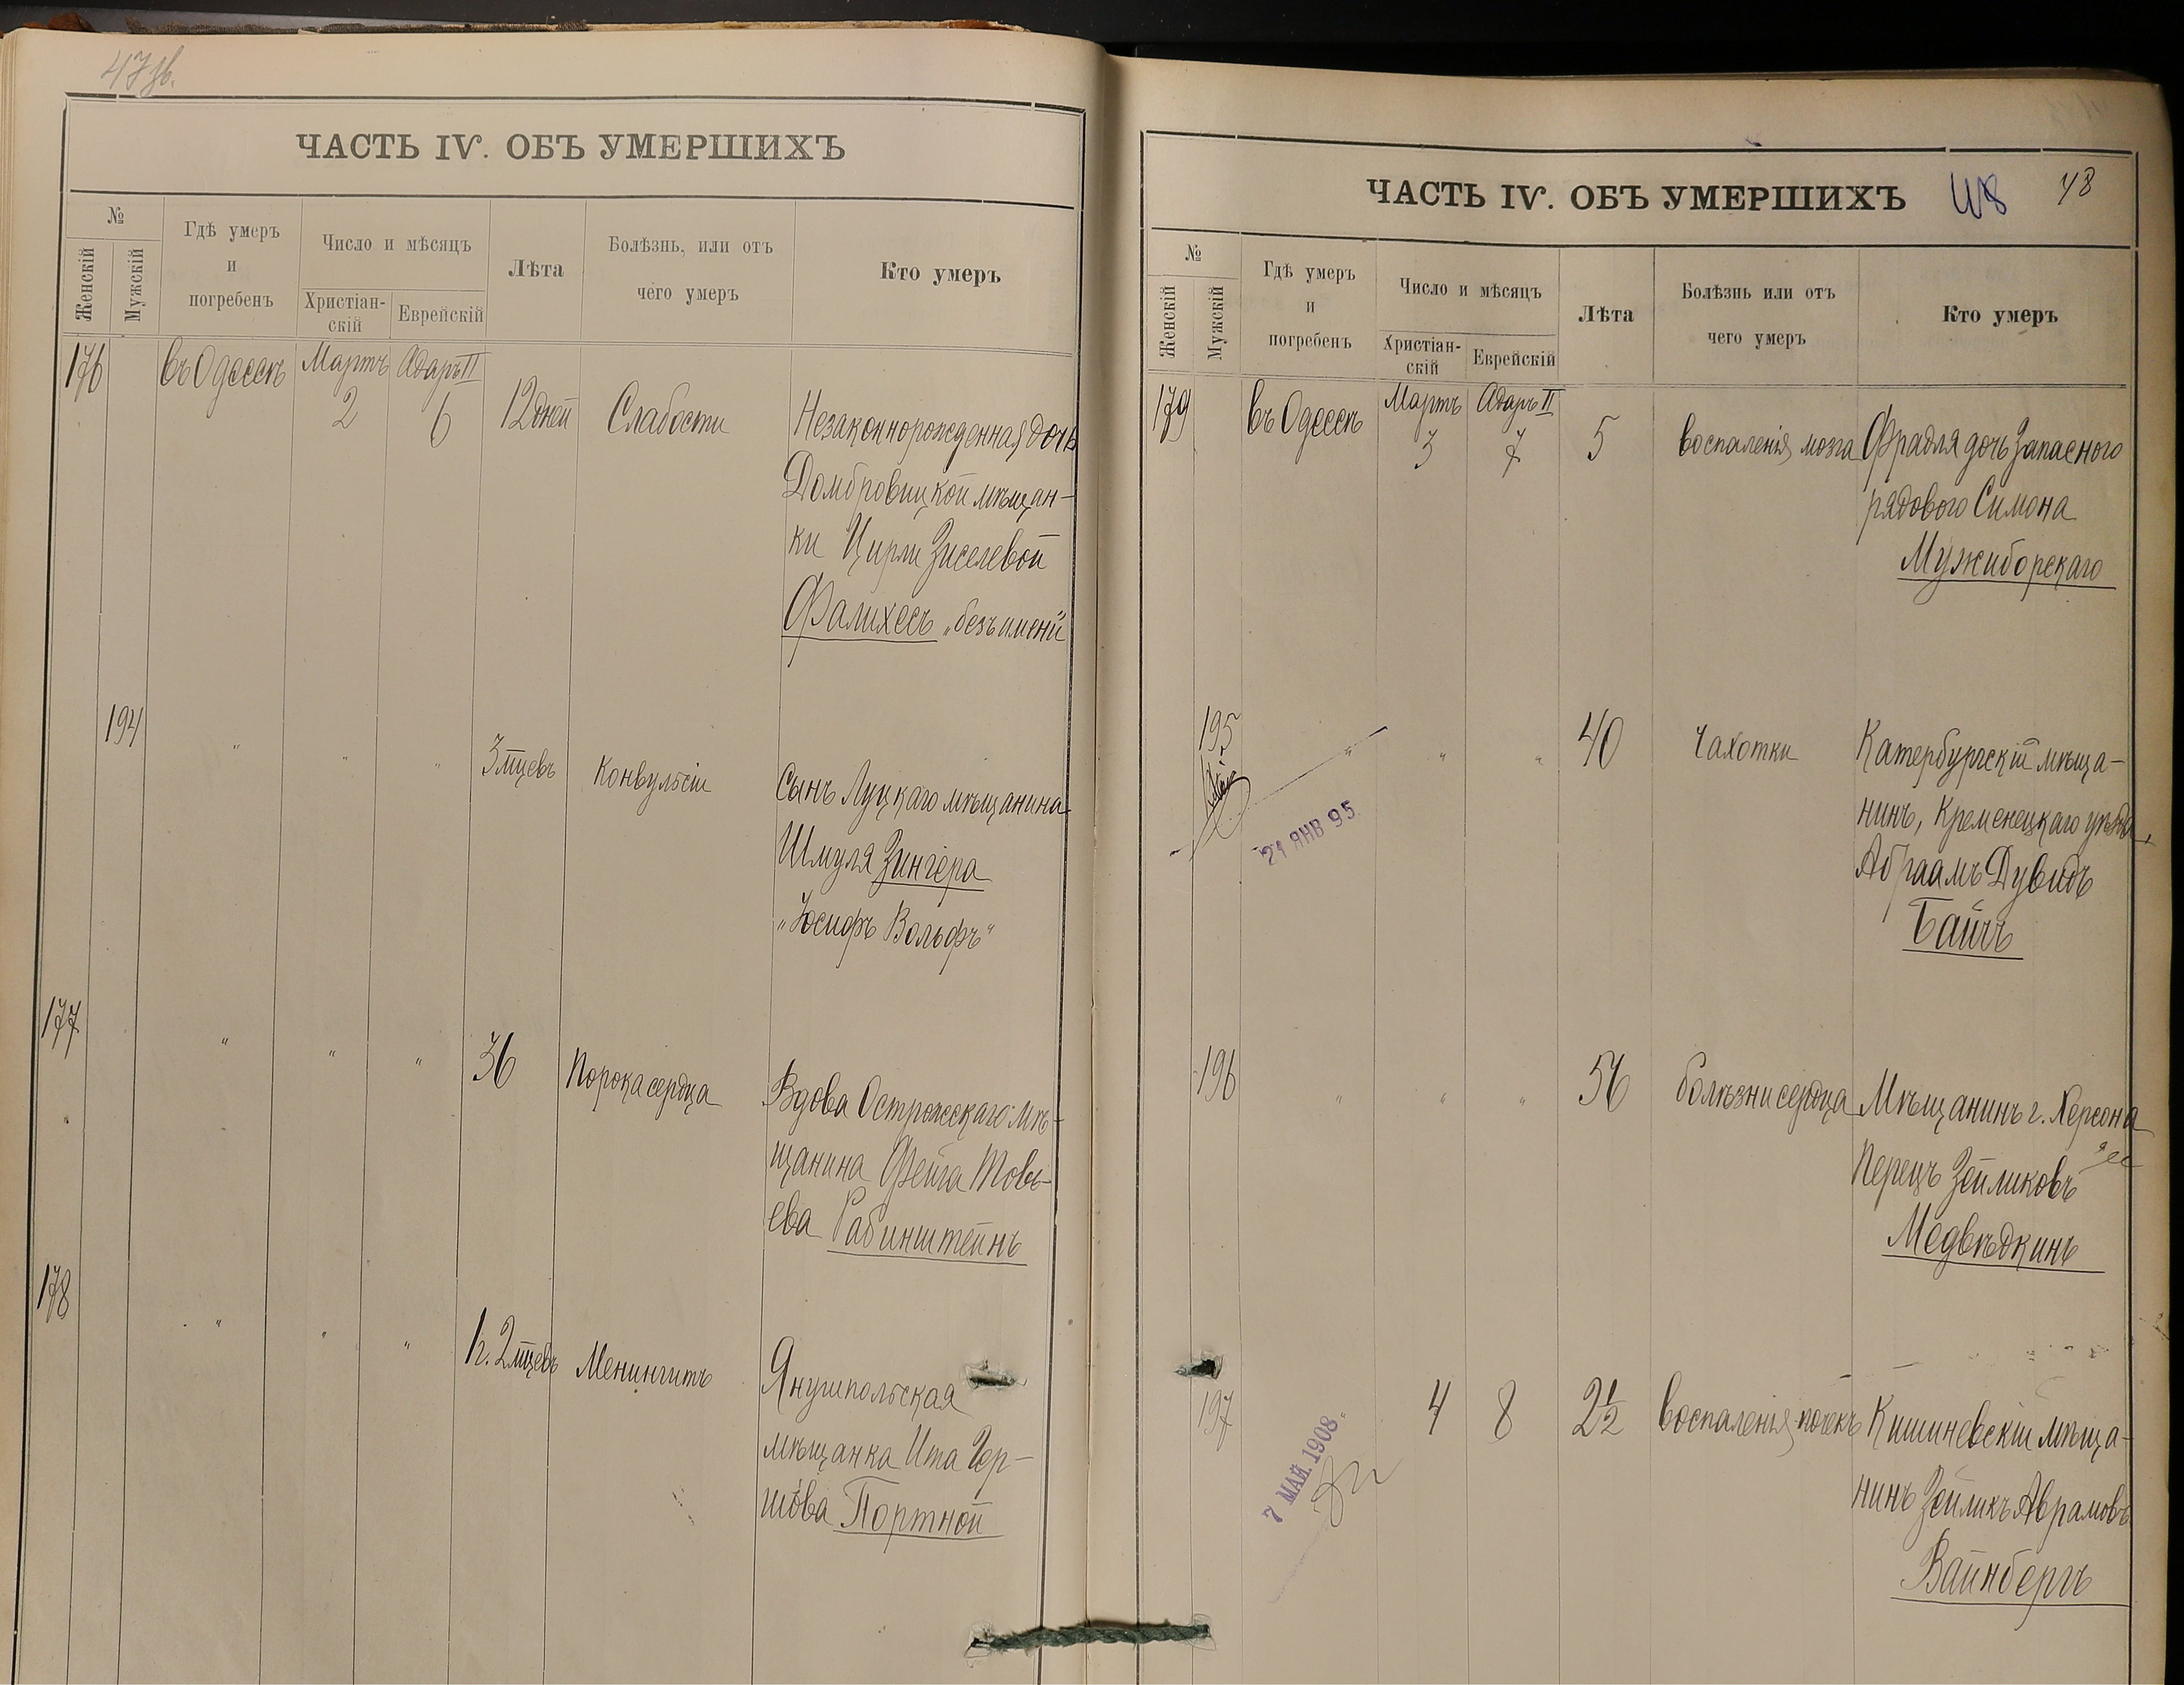 47 зв.
ЧАСТЬ IV. ОБЪ УМЕРШИХЪ
№
Женскій
Мужскій
Гдѣ умеръ
и
погребенъ
Число и мѣсяцъ
Христіан-
скій
Еврейскій
Лѣта
Болѣзнь, или отъ
чего умеръ
Кто умеръ
176 въ Одессѣ Мартъ Адаръ II
2 6 12 дней Слабости Незаконнорожденная дочь
Домбровицкой мѣщан-
ки Цирли Зиселевой
Фалихесъ „безъ имени"
194 " " " 3 мцевъ Конвульсіи Сынъ Луцкаго мѣщанина
Шмуля Зингера
„Іосифъ Вольфъ"
177 " " " 36 Порока сердца Вдова Острожскаго мѣ-
щанина Фейга Товь-
ева Рабинштейнъ
178 " " " 1 г. 2 мцевъ Менингитъ Янушпольская
мѣщанка Ита Гер-
шова Портной
ЧАСТЬ IV. ОБЪ УМЕРШИХЪ 48
№
Женскій
Мужскій
Гдѣ умеръ
и
погребенъ
Число и мѣсяцъ
Христіан-
скій
Еврейскій
Лѣта
Болѣзнь или отъ
чего умеръ
Кто умеръ
179 въ Одессѣ Мартъ Адаръ II
3 7 5 воспаленія мозга Фрадля дочь запасного
рядового Симона
Мужиборскаго
195 " " " 40 Чахотки Катербургскій мѣща-
нинъ, Кременецкаго уѣзда,
Абраамъ Дувидъ
Байчъ
21 ЯНВ 95.
196 " " " 56 болѣзни сердца Мѣщанинъ г. Херсона
Перецъ Зейликовъ
Медвѣдкинъ
197 4 8 2½ воспаленія почекъ Кишиневскій мѣща-
нинъ Зейликъ Аврамовъ
Вайнбергъ
7 МАЙ. 1908.